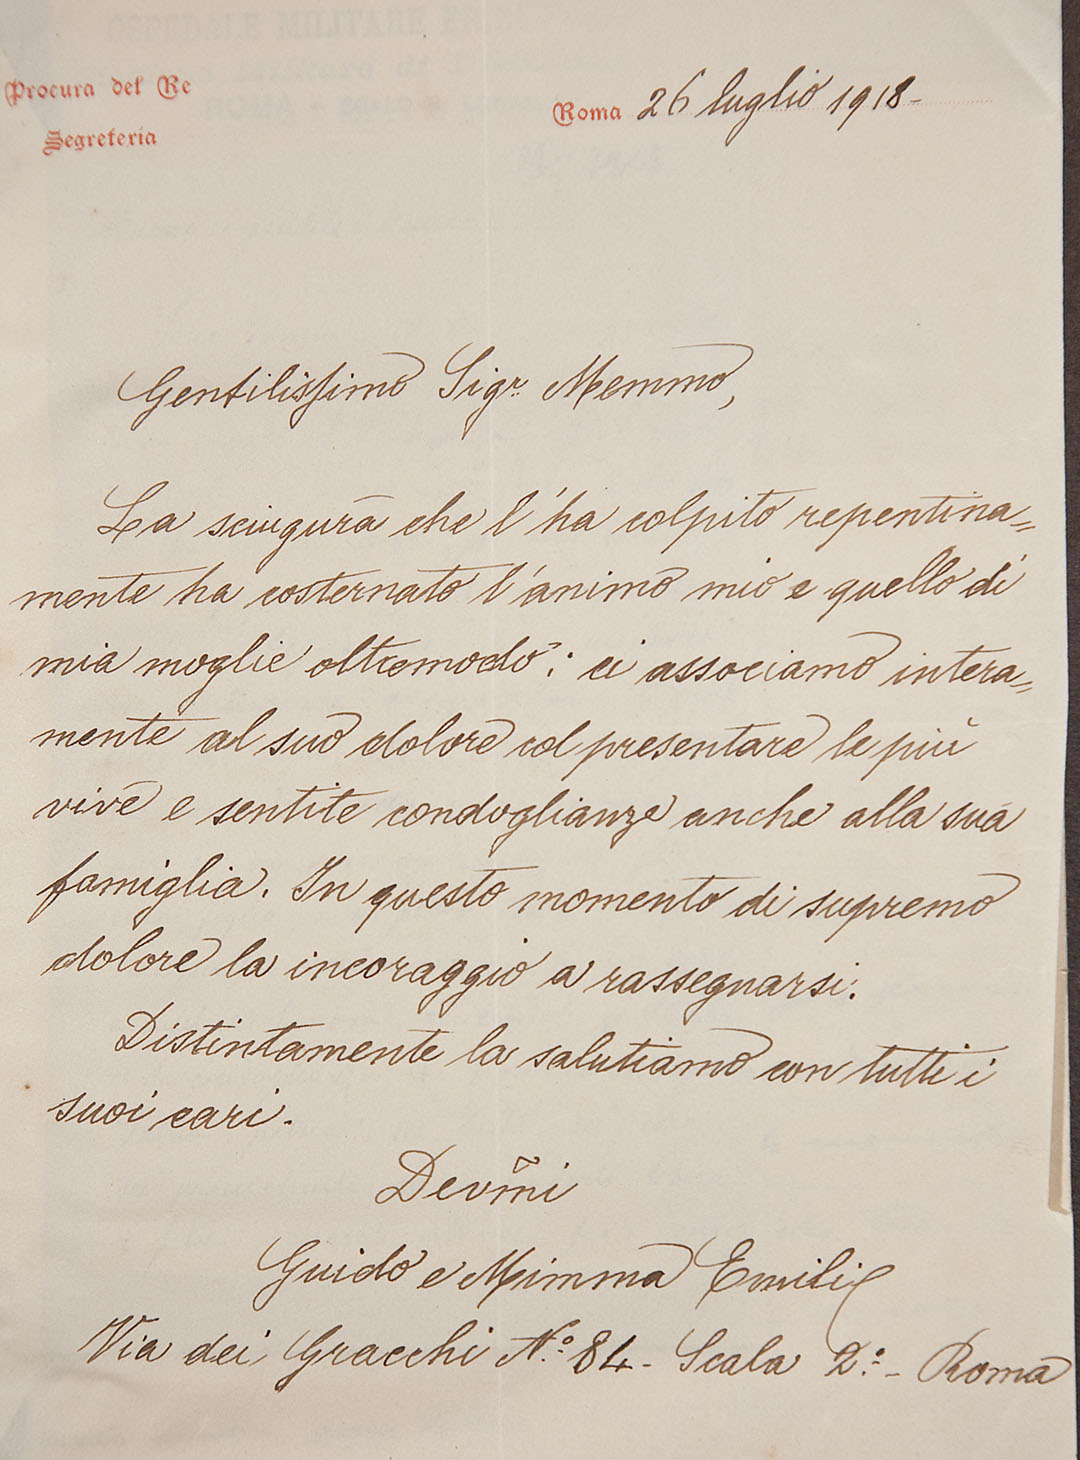 Procura del Re
Segreteria
Roma 26 luglio 1918-
Gentilissimo Sigr. Memmo,
La sciagura che l'ha colpito repentina=
mente ha costernato l'animo mio e quello di
mia moglie oltremodo: ci associamo intera=
mente al suo dolore col presentare le più
vive e sentite condoglianze anche alla sua
famiglia. In questo momento di supremo
dolore la incoraggio a rassegnarsi.
Distintamente la salutiamo con tutti i
suoi cari.
Devm̃i
Guido e Mimma Emili
Via dei Gracchi N.° 84- Scala 2.°- Roma